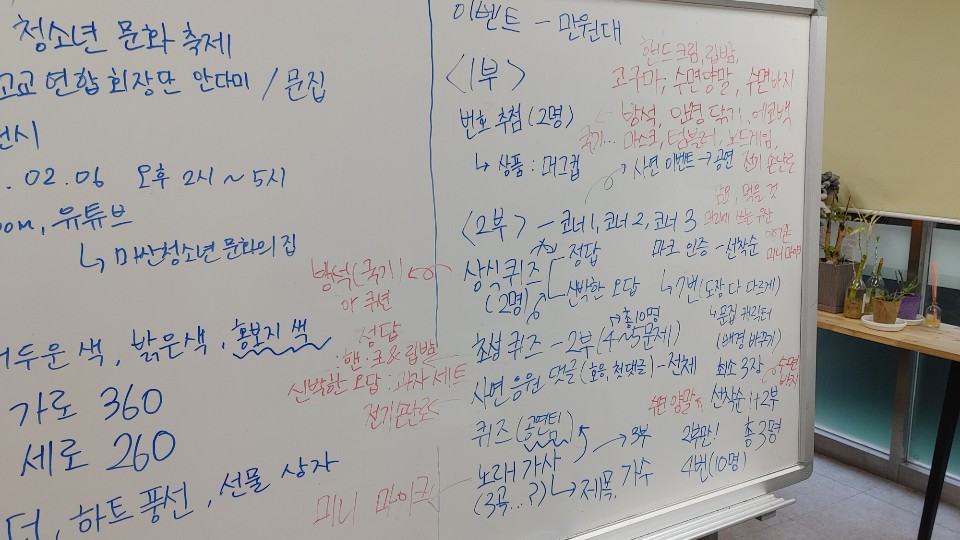 청소년 문화 축제
고교 연합 회장단 안다미 / 문집
전시
. 02. 06 오후 2시 ~ 5시
oom, 유튜브
↳ 마산청소년 문화의 집
어두운 색, 밝은색, 홍보지 색
가로 360
세로 260
더, 하트 풍선, 선물 상자
이벤트 - 만원대
<1부>
핸드크림, 립밤,
고구마, 수면양말, 수면바지
번호 추첨 (2명)
방석, 인형 닦기, 에코백
마스크, 텀블러, 보드게임,
↳ 상품 : 머그컵
사연 이벤트 → 공연
전기 손난로
담요, 먹을 것
<2부> - 코너1, 코너2, 코너3
거꾸로 쓰는 우산
미니 마이크
상식퀴즈
(2명)
정답
신박한 오답
마크 인증 - 선착순
↳ 7번 (도장 다 다르게)
↳ 문집 캐릭터
(배경 바꾸기)
방석(국기)
아 쿠션
정답
: 핸.크 & 립밤
신박한 오답 : 과자 세트
전기손난로
→ 총 10명
초성 퀴즈 - 2부 (4~5문제)
사연 응원 댓글 (호응, 첫댓글) - 전체
최소 3장
수면 바지
수면 양말
선착순 1+2부
퀴즈 (공연팀)
→ 3부
2부만! 총 3명
노래 가사
(3곡...?)
↳ 제목, 가수
4번 (10명)
미니 마이크